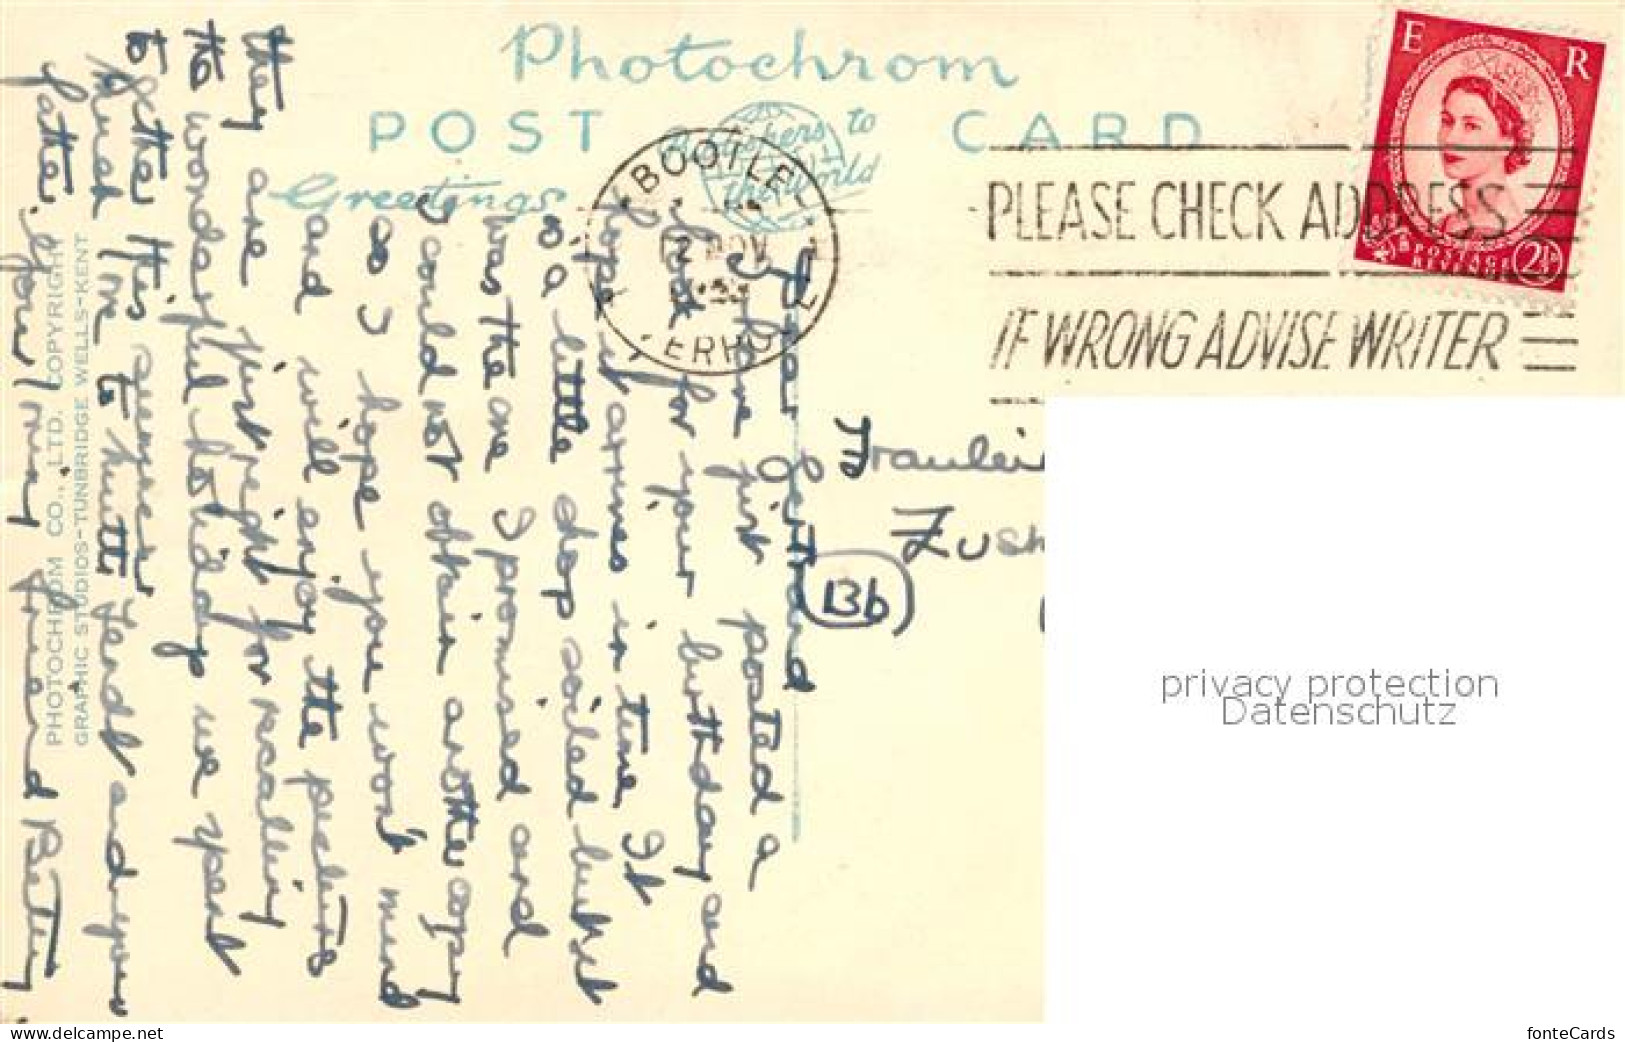 Photochrom
POST CARD
Greetings
Publishers to
the World
BOOTLE
2 NOV
PLEASE CHECK ADDRESS
IF WRONG ADVISE WRITER
E R
POSTAGE
REVENUE
2½D
Dear Gertrand
I have just posted a
book for your birthday and
hope it arrives in time It
is a little shop soiled but it
was the one I promised and
I could not obtain another copy
so I hope you won't mind
and will enjoy the pictures
they are just right for recalling
the wonderful holiday we spent
together this summer
must love to Mutti and your
father. Your loving friend Betty
PHOTOCHROM CO., LTD. COPYRIGHT
GRAPHIC STUDIOS-TUNBRIDGE WELLS-KENT
Fraulein
Bb
privacy protection
Datenschutz
www.delcampe.net
fonteCards